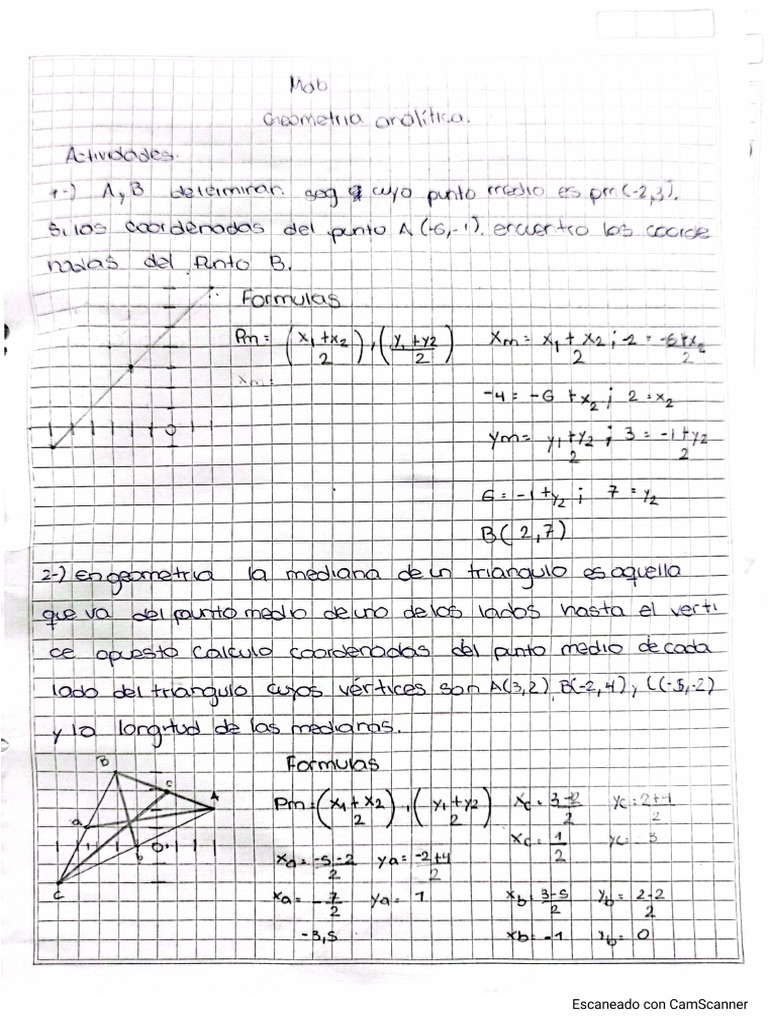 Mab
Geometria analítica.
Actividades.
1-) A, B determinan seg cuyo punto medio es pm(-2,3).
Si las coordenadas del punto A (-6,-1). encuentra las coorde
nadas del Punto B.
Formulas
Pm = (x₁+x₂/2), (y₁+y₂/2) Xm = x₁+x₂/2 ; -2 = -6+x₂/2
Xm =
-4 = -6 + x₂ ; 2 = x₂
O
ym = y₁+y₂/2 ; 3 = -1+y₂/2
6 = -1+y₂ ; 7 = y₂
B( 2,7)
2-) En geometria la mediana de un triangulo es aquella
que va del punto medio de uno de los lados hasta el verti
ce opuesto calcula coordenadas del punto medio de cada
lado del triangulo cuyos vértices son A(3,2), B(-2,4), C(-5,-2)
y la longitud de las medianas.
B Formulas
c A
Pm = (x₁+x₂/2), (y₁+y₂/2) Xc = 3-2/2 yc = 2+4/2
a
b O
Xc = 1/2 yc = 3
xa = -5-2/2 ya = -2+4/2
C
xa = -7/2 ya = 1 xb = 3-5/2 yb = 2-2/2
-3,5 xb = -1 yb = 0
Escaneado con CamScanner